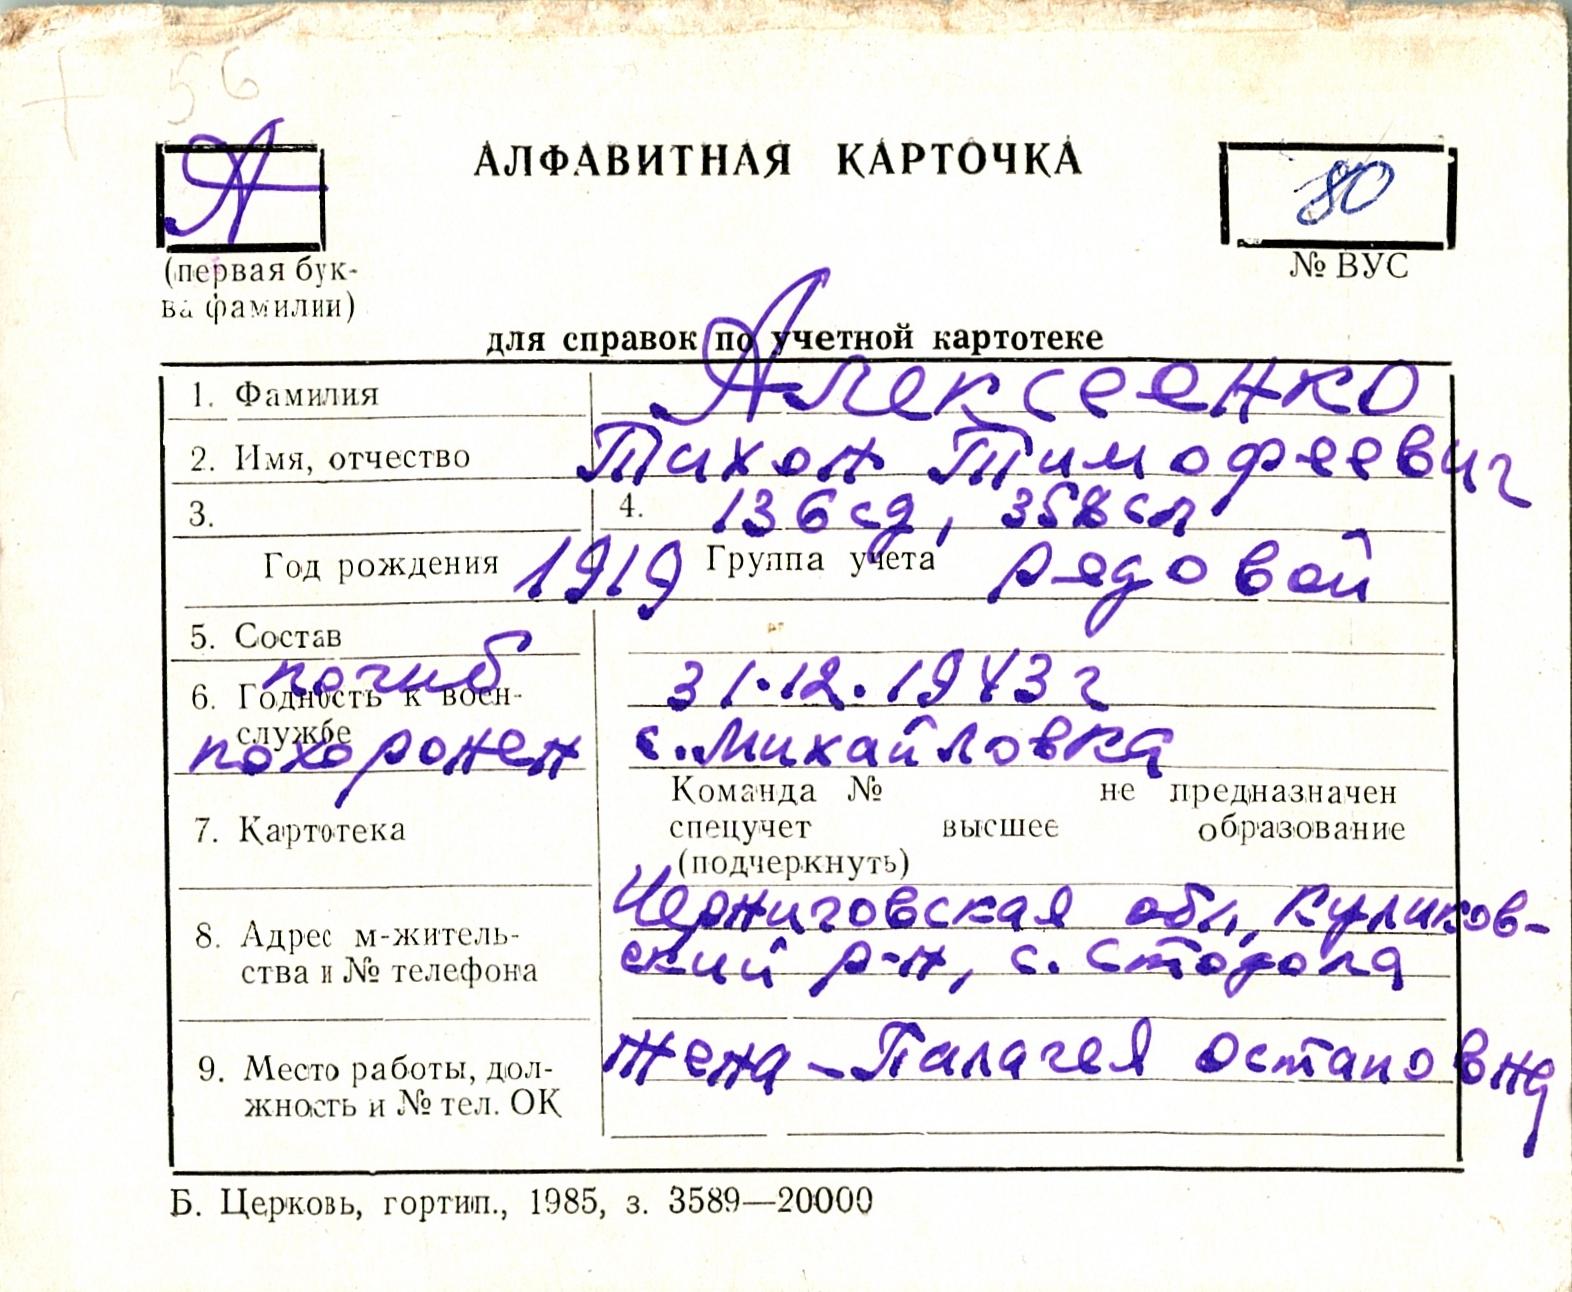 + 56
А
АЛФАВИТНАЯ КАРТОЧКА
80
(первая бук-
ва фамилии)
№ ВУС
для справок по учетной картотеке
1. Фамилия Алексеенко
2. Имя, отчество Тихон Тимофеевич
3. 4. 136 сд, 358 сп
Год рождения 1919 Группа учета рядовой
5. Состав
погиб 31.12.1943 г
6. Годность к воен-
службе
похоронен с. Михайловка
Команда № не предназначен
7. Картотека спецучет высшее образование
(подчеркнуть)
Черниговская обл, Куликов-
8. Адрес м-житель-
ства и № телефона ский р-н, с.
жена - Палагея Остаповна
9. Место работы, дол-
жность и № тел. ОК
Б. Церковь, гортип., 1985, з. 3589—20000